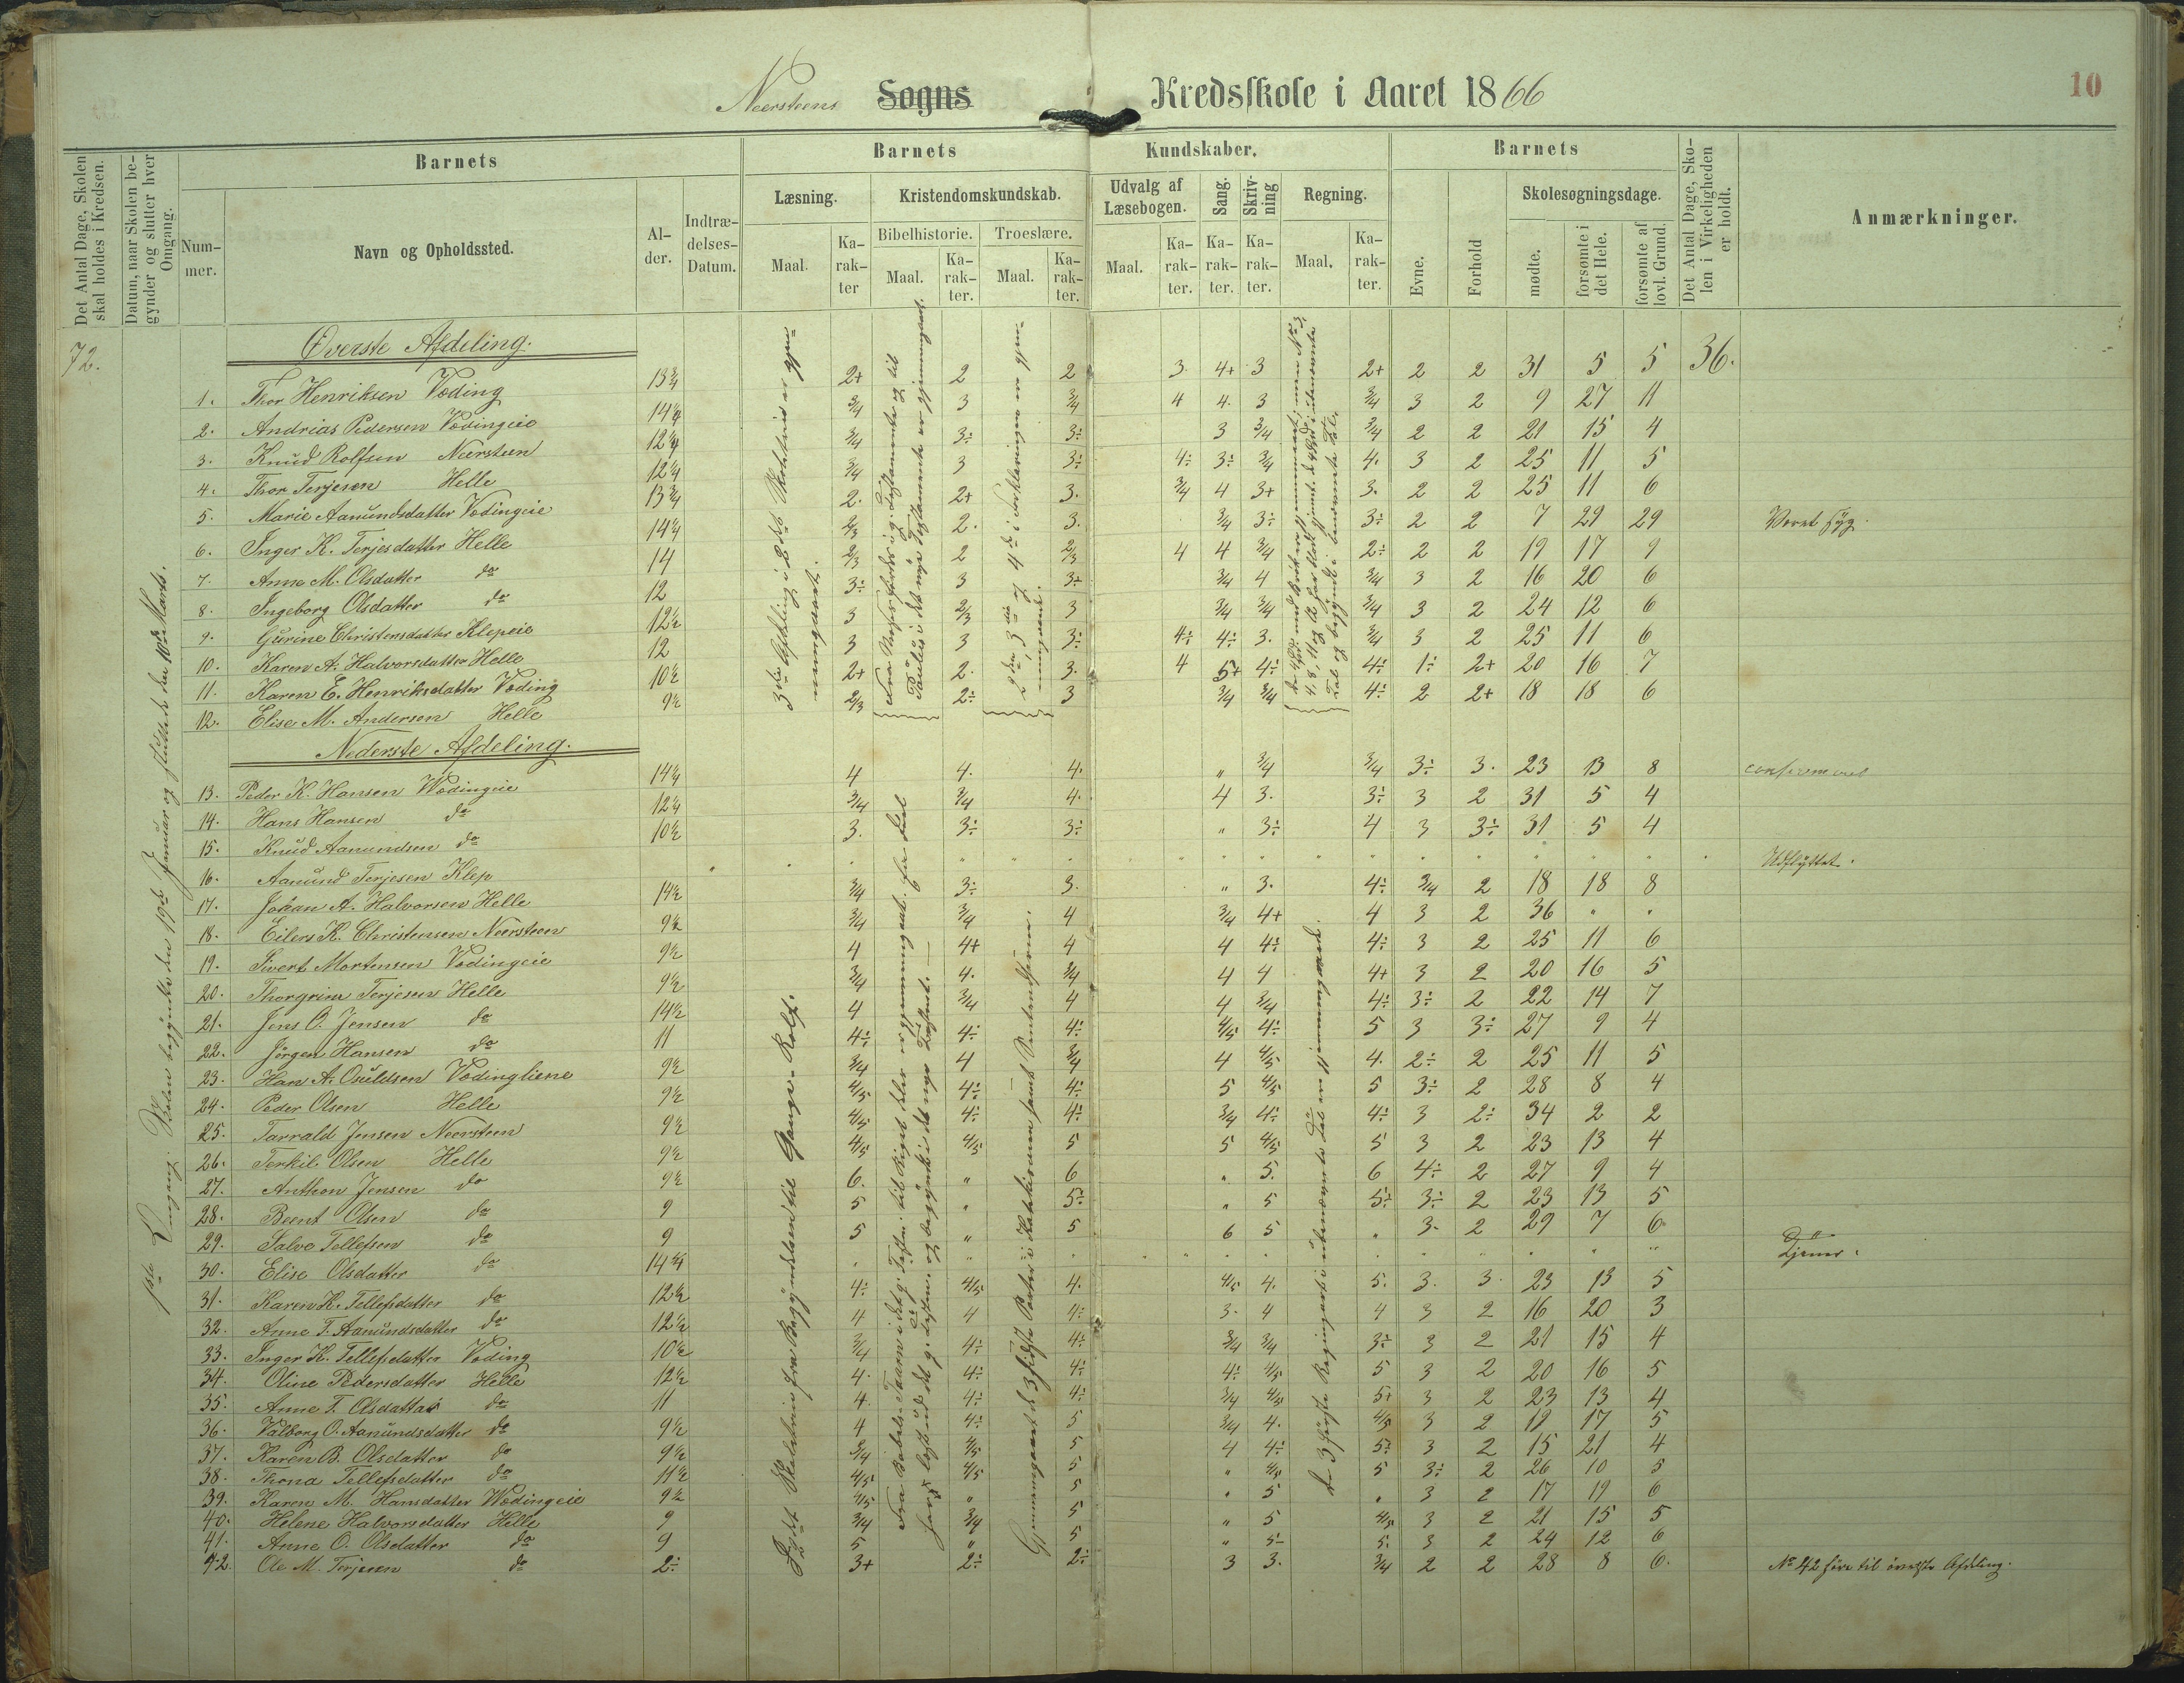 Neersteens Sogns Kredsskole i Aaret 1866
10
Det Antal Dage, Skolen skal holdes i Kredsen.
Datum, naar Skolen begynder og slutter hver Omgang.
Barnets
Nummer.
Navn og Opholdssted.
Alder.
Indtrædelses-Datum.
Barnets Kundskaber.
Læsning.
Maal.
Karakter
Kristendomskundskab.
Bibelhistorie.
Maal.
Karakter.
Troeslære.
Maal.
Karakter.
Udvalg af Læsebogen.
Maal.
Karakter.
Sang.
Karakter.
Skrivning
Karakter.
Regning.
Maal.
Karakter.
Barnets
Evne.
Forhold
Skolesøgningsdage.
mødte.
forsømte i det Hele.
forsømte af lovl. Grund.
Det Antal Dage, Skolen i Virkeligheden er holdt.
Anmærkninger.
72.
36.
1ste Omgang. Skolen begyndte den 19de Januar og sluttede den 10de Marts.
Øverste Afdeling.
1. Thor Henriksen Vøding 13¾ 2+ 2 2 3 4+ 3 2+ 2 2 31 5 5
2. Andrias Pedersen Vødingeie 14¼ 3/4 3 3/4 4 4. 3 3/4 3 2 9 27 11
3. Knud Rolfsen Neersteen 12¼ 3/4 3÷ 3÷ 3 3/4 3/4 2 2 21 15 4
4. Thor Terjesen Helle 12¼ 3/4 3 3÷ 4÷ 3÷ 3/4 4. 3 2 25 11 5
5. Marie Aanundsdatter Vødingeie 13¾ 2. 2+ 3. 3/4 4 3+ 3. 2 2 25 11 6
6. Inger K. Terjesdatter Helle 14¼ 2/3 2. 3. 3/4 3÷ 3÷ 2 2 7 29 29 Været syg.
7. Anne M. Olsdatter do 14 2/3 2 2/3 4 4 3/4 2÷ 2 2 19 17 9
8. Ingeborg Olsdatter do 12 3÷ 3 3+ 3/4 4 3/4 3 2 16 20 6
9. Gurine Christensdatter Klepeie 12½ 3 2/3 3 3/4 3/4 3/4 3 2 24 12 6
10. Karen A. Halvorsdatter Helle 12 3 3 3÷ 4÷ 4÷ 3. 3/4 3 2 25 11 6
11. Karen E. Henriksdatter Vøding 10½ 2+ 2. 3. 4 5+ 4÷ 4÷ 1÷ 2+ 20 16 7
12. Elise M. Andersen Helle 9½ 2/3 2÷ 3 3/4 3/4 4÷ 2 2+ 18 18 6
3die Afdeling i 2det Skoletrin er gjennemgaaet.
2den, 3die og 4de i Forklaringen er gjennemgaaet.
Nederste Afdeling.
13. Peder K. Hansen Wødingeie 14¼ 4 4. 4. „ 3/4 3/4 3÷ 3. 23 13 8 confirmeret
14. Hans Hansen do 12¼ 3/4 3/4 4. 4 3. 3÷ 3 2 31 5 4
15. Knud Aanundsen do 10½ 3. 3÷ 3÷ „ 3÷ 4 3 3÷ 31 5 4
16. Aanund Terjesen Klep Udflyttet.
17. Johan A. Halvorsen Helle 14½ 3/4 3÷ 3. „ 3. 4÷ 3/4 2 18 18 8
18. Eilers K. Christensen Neersteen 9½ 3/4 3/4 4 3/4 4+ 4 3 2 36 „ „
19. Sivert Mortensen Vødingeie 9½ 4 4+ 4 4 4÷ 4÷ 3 2 25 11 6
20. Thorgrim Terjesen Helle 9½ 3/4 4. 3/4 4 4 4+ 3 2 20 16 5
21. Jens O. Jensen do 14½ 4 3/4 4 4 3/4 4÷ 3÷ 2 22 14 7
22. Jörgen Hansen do 11 4÷ 4÷ 4÷ 4/5 4÷ 5 3 3÷ 27 9 4
23. Han A. Osuldsen Vødingliene 9½ 3/4 4 3/4 4 4/5 4. 2÷ 2 25 11 5
24. Peder Olsen Helle 9½ 4/5 4÷ 4÷ 5 4/5 5 3÷ 2 28 8 4
25. Tarrald Jensen Neersteen 9½ 4/5 4÷ 4÷ 3/4 4÷ 4÷ 3 2÷ 34 2 2
26. Terkil Olsen Helle 9½ 4/5 4/5 5 5 4/5 5 3 2 23 13 4
27. Anthon Jensen do 9½ 6. „ 6 „ 5. 6 4÷ 2 27 9 4
28. Beent Olsen do 9 5 „ 5÷ „ 5 5÷ 3÷ 2 23 13 5
29. Salve Tellefsen do 9 5 „ 5 6 5 „ 3. 2 29 7 6
30. Elise Olsdatter do 14¾ Tjener.
31. Karen K. Tellefsdatter do 12½ 4÷ 4/5 4. 4/5 4. 5. 3. 3. 23 13 5
32. Anne T. Aanundsdatter do 12½ 4 4 4÷ 3. 4 4 3 2 16 20 3
33. Inger K. Tellefsdatter Vøding 10½ 3/4 4÷ 4÷ 3/4 3/4 3÷ 3 2 21 15 4
34. Oline Pedersdatter Helle 12½ 4. 4÷ 4÷ 4÷ 4/5 5 3 2 20 16 5
35. Anne T. Olsdatter do 11 4. 4÷ 4÷ 3/4 4/5 5+ 3 2 23 13 4
36. Valborg O. Aanundsdatter do 9½ 4 4÷ 5 3/4 4. 4/5 3 2 19 17 5
37. Karen B. Olsdatter do 9½ 3/4 4/5 5 4 4÷ 5÷ 3 2 15 21 4
38. Thona Tellefsdatter do 11½ 4/5 4/5 5 „ 4/5 5 3÷ 2 26 10 5
39. Karen M. Hansdatter Wødingeie 9½ 4/5 „ 5 „ 5 „ 3 2 17 19 6
40. Helene Halvorsdatter Helle 9 3/4 3/4 5 „ 5 4/5 3 2 21 15 5
41. Anne O. Olsdatter do 9 5 „ 5 „ 5÷ 5. 3 2 24 12 6
42. Ole M. Terjesen do 2÷ 3+ 2÷ 2÷ 3 3. 3/4 2 2 28 8 6. No 42 hører til øverste Afdeling.
Skoletrin fra Begyndelsen til Gange-Rolf.
Gjennemgaaet de 3 sidste Parter i Katekismen samt
de 3 første Regningsarter i ubenævnte Tal er gjennemgaaede.